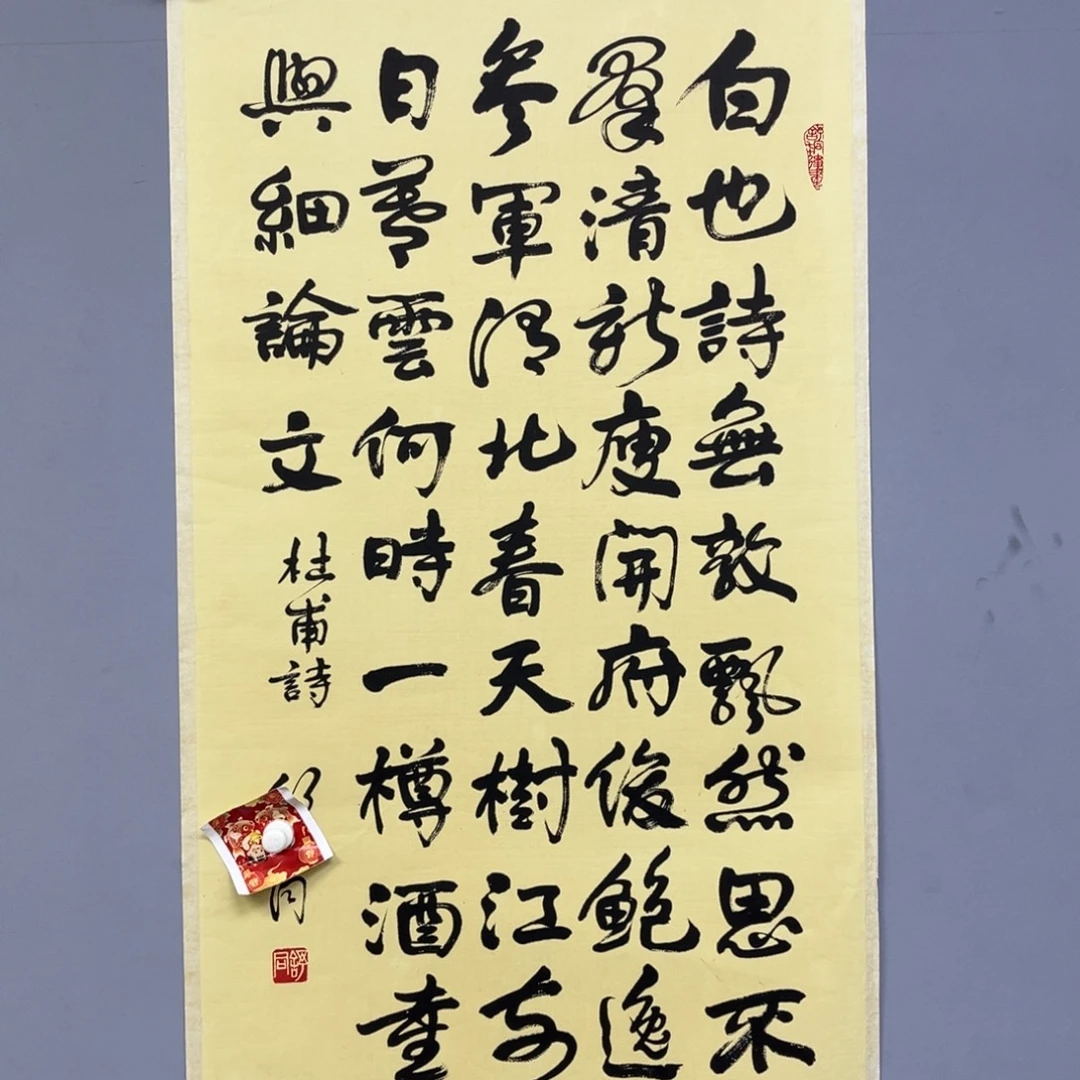 白也詩無敵飄然思不
羣清新庾開府俊鮑逸
參軍渭北春天樹江東
日暮雲何時一樽酒重
與細論文
杜甫詩
舒同
舒同